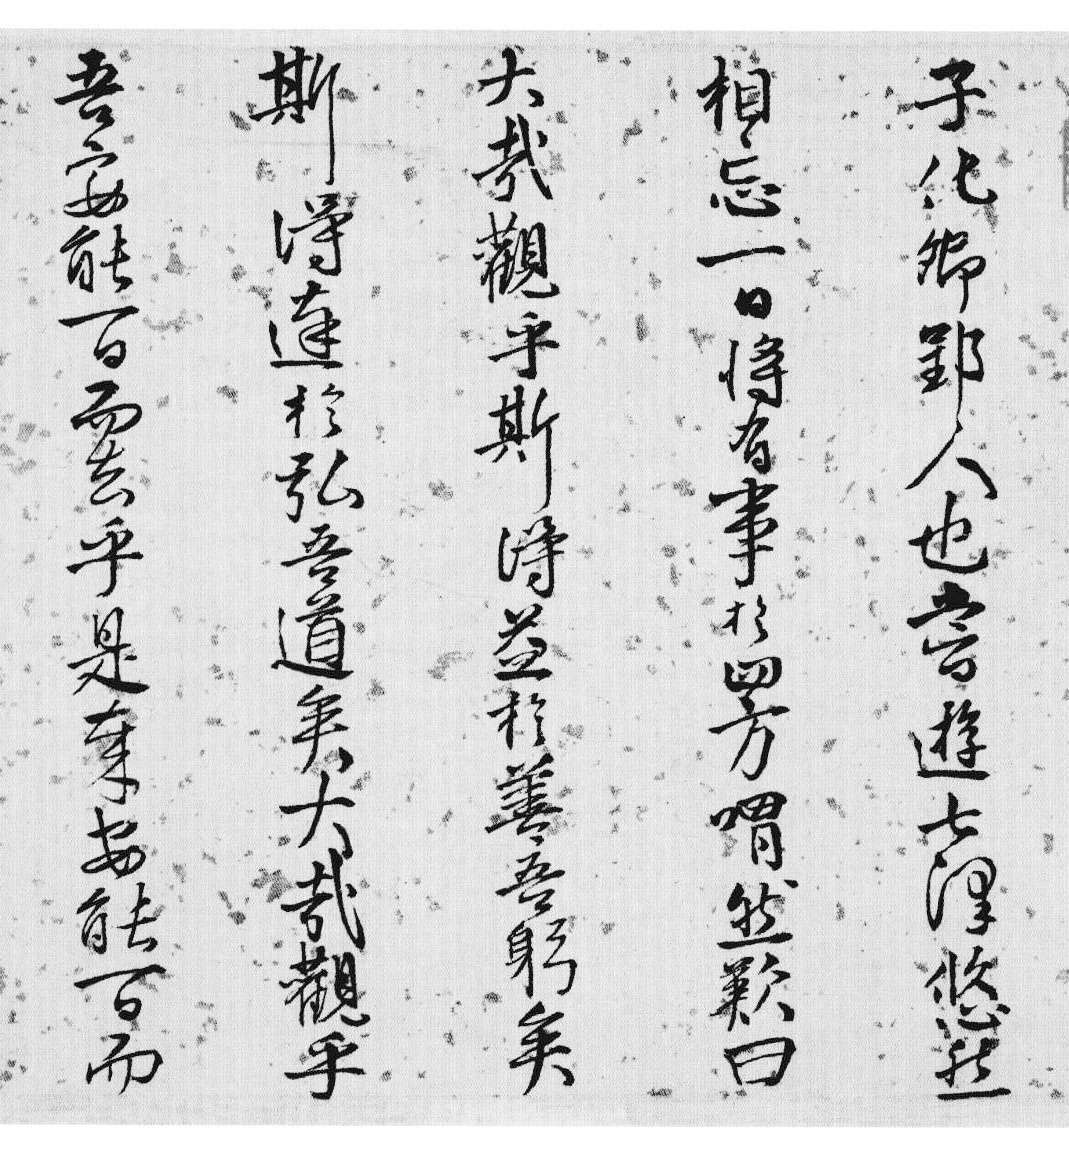 子化卿郢人也嘗遊七澤悠然
相忘一日將有事於四方喟然歎曰
大哉觀乎斯得益於善吾躬矣
斯得達於弘吾道矣大哉觀乎
吾安能一日而去乎是安能一日而